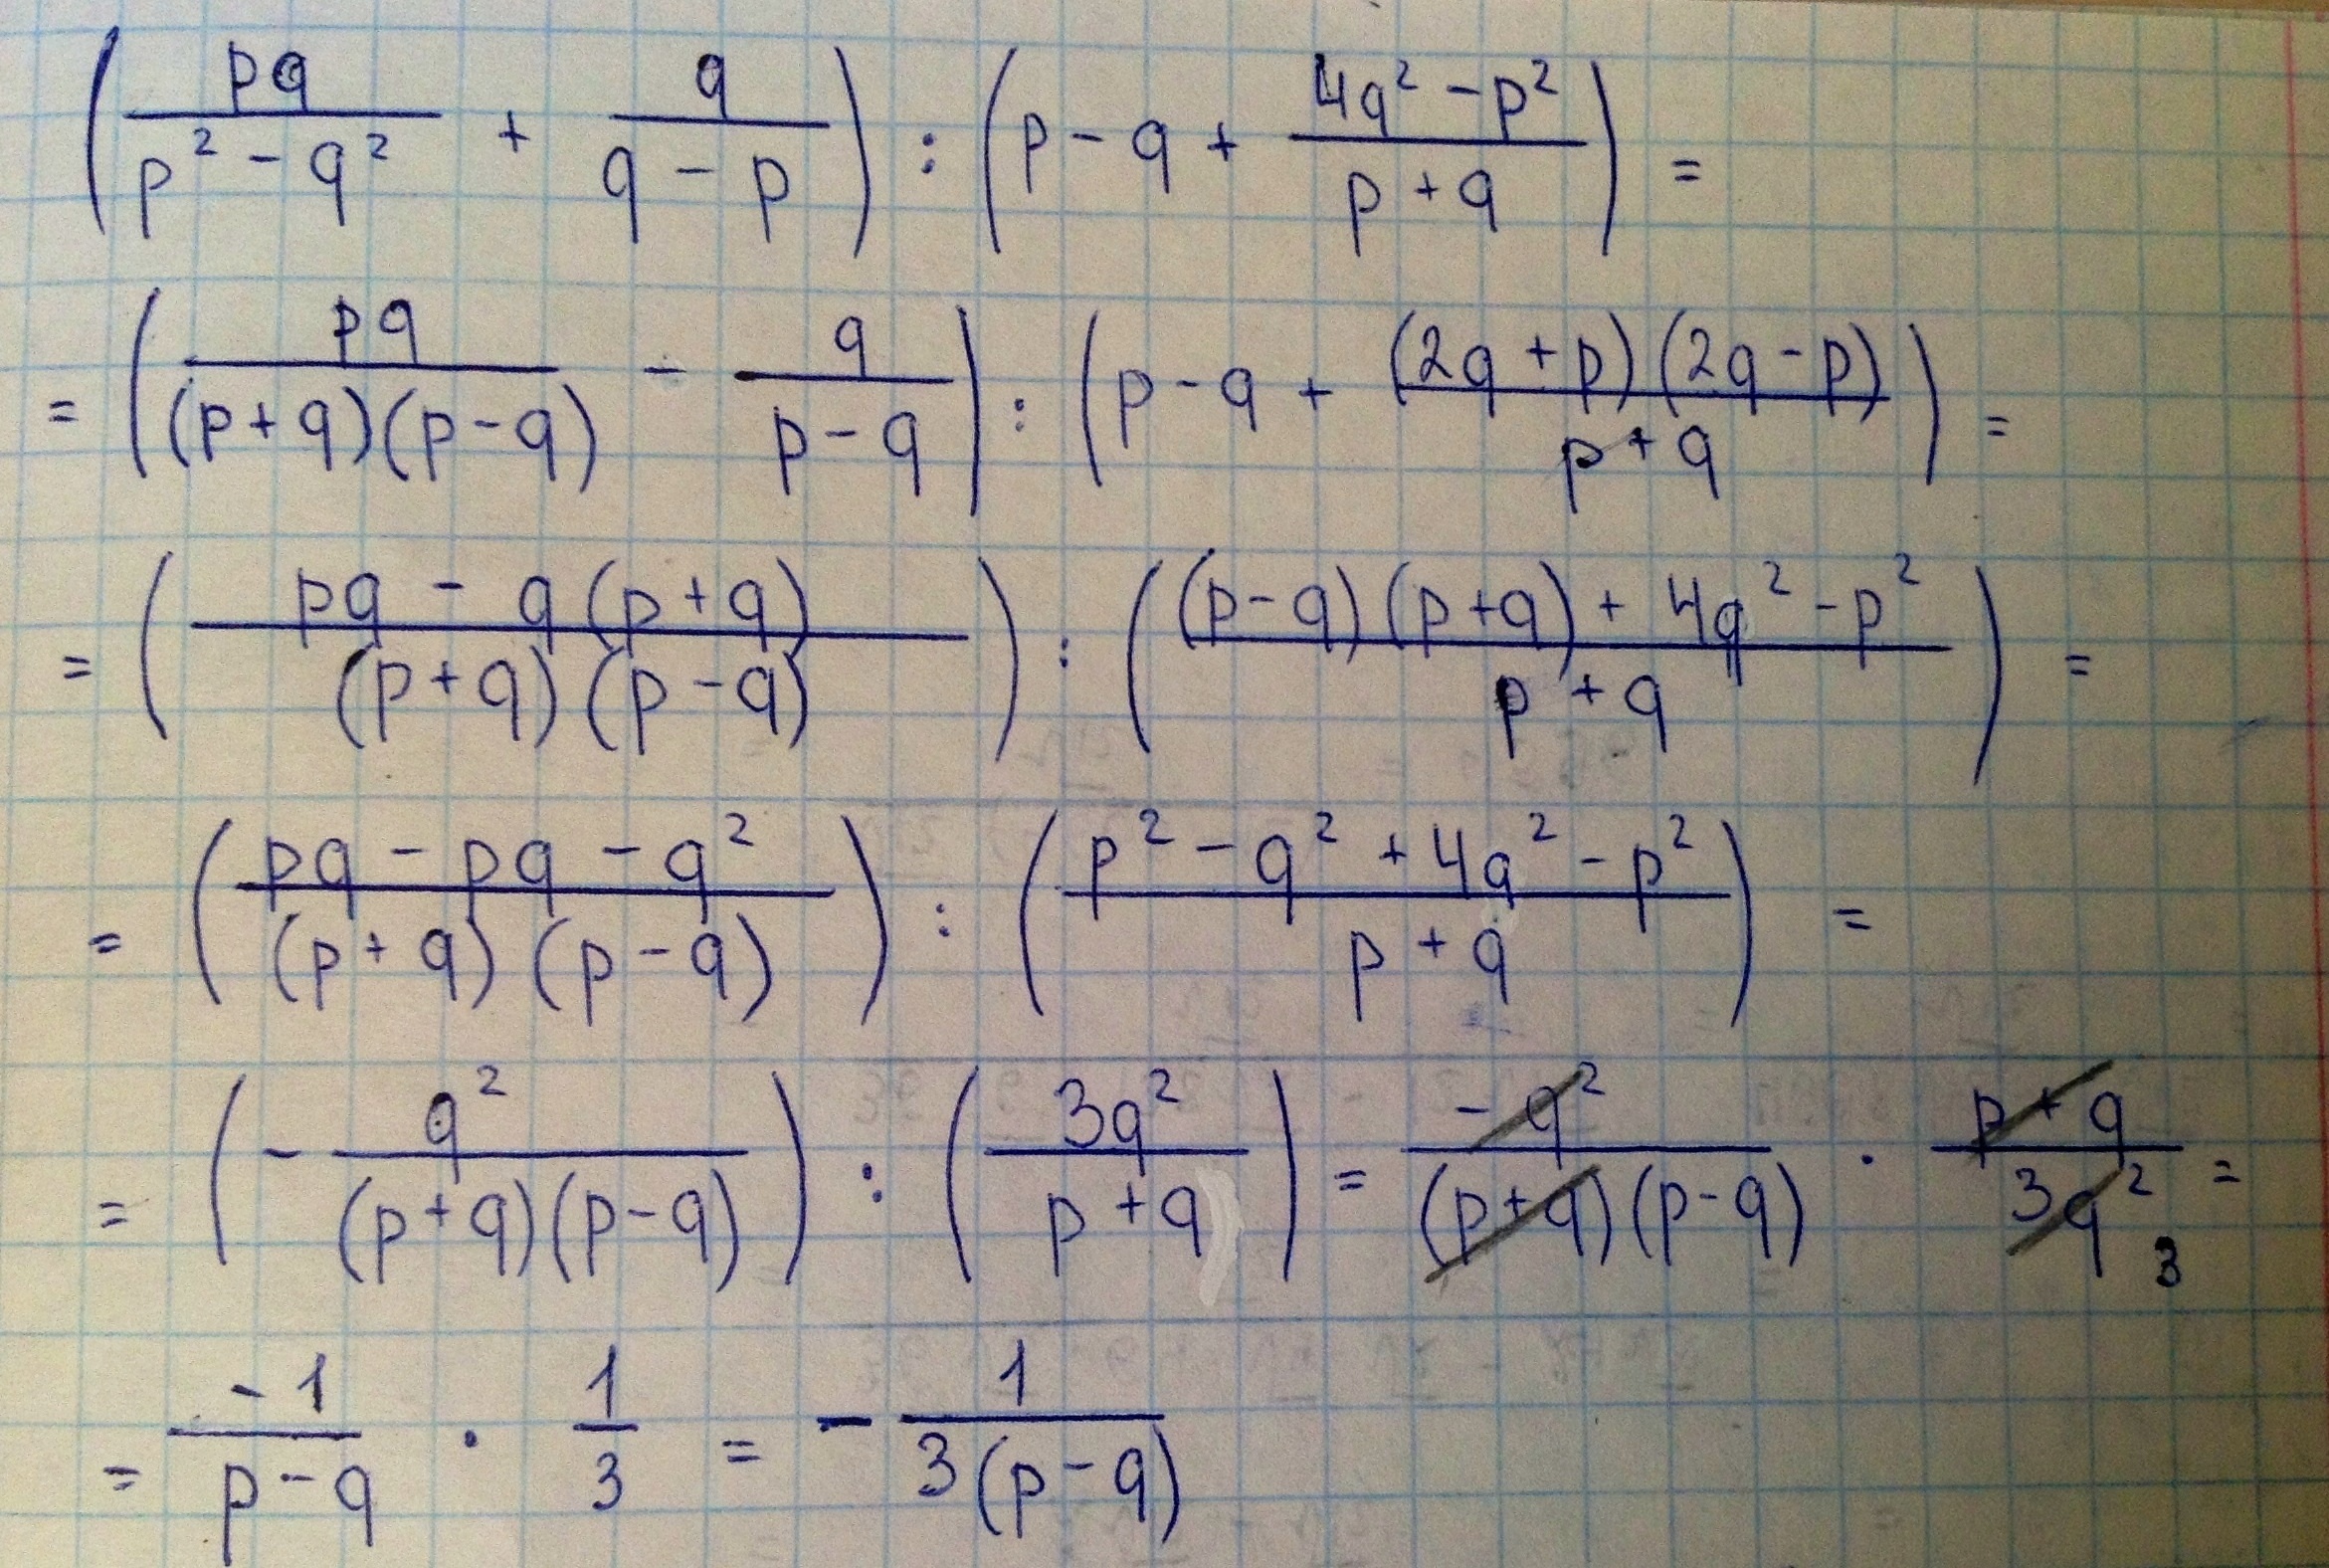 (pq/(p² - q²) + q/(q - p)) : (p - q + (4q² - p²)/(p + q)) =
= (pq/((p+q)(p-q)) - q/(p-q)) : (p - q + ((2q+p)(2q-p))/(p+q)) =
= ((pq - q(p+q))/((p+q)(p-q))) : (((p-q)(p+q) + 4q² - p²)/(p+q)) =
= ((pq - pq - q²)/((p+q)(p-q))) : ((p² - q² + 4q² - p²)/(p+q)) =
= (- q²/((p+q)(p-q))) : (3q²/(p+q)) = -q²/((p+q)(p-q)) · (p+q)/(3q²) = 3
= -1/(p-q) · 1/3 = - 1/(3(p-q))